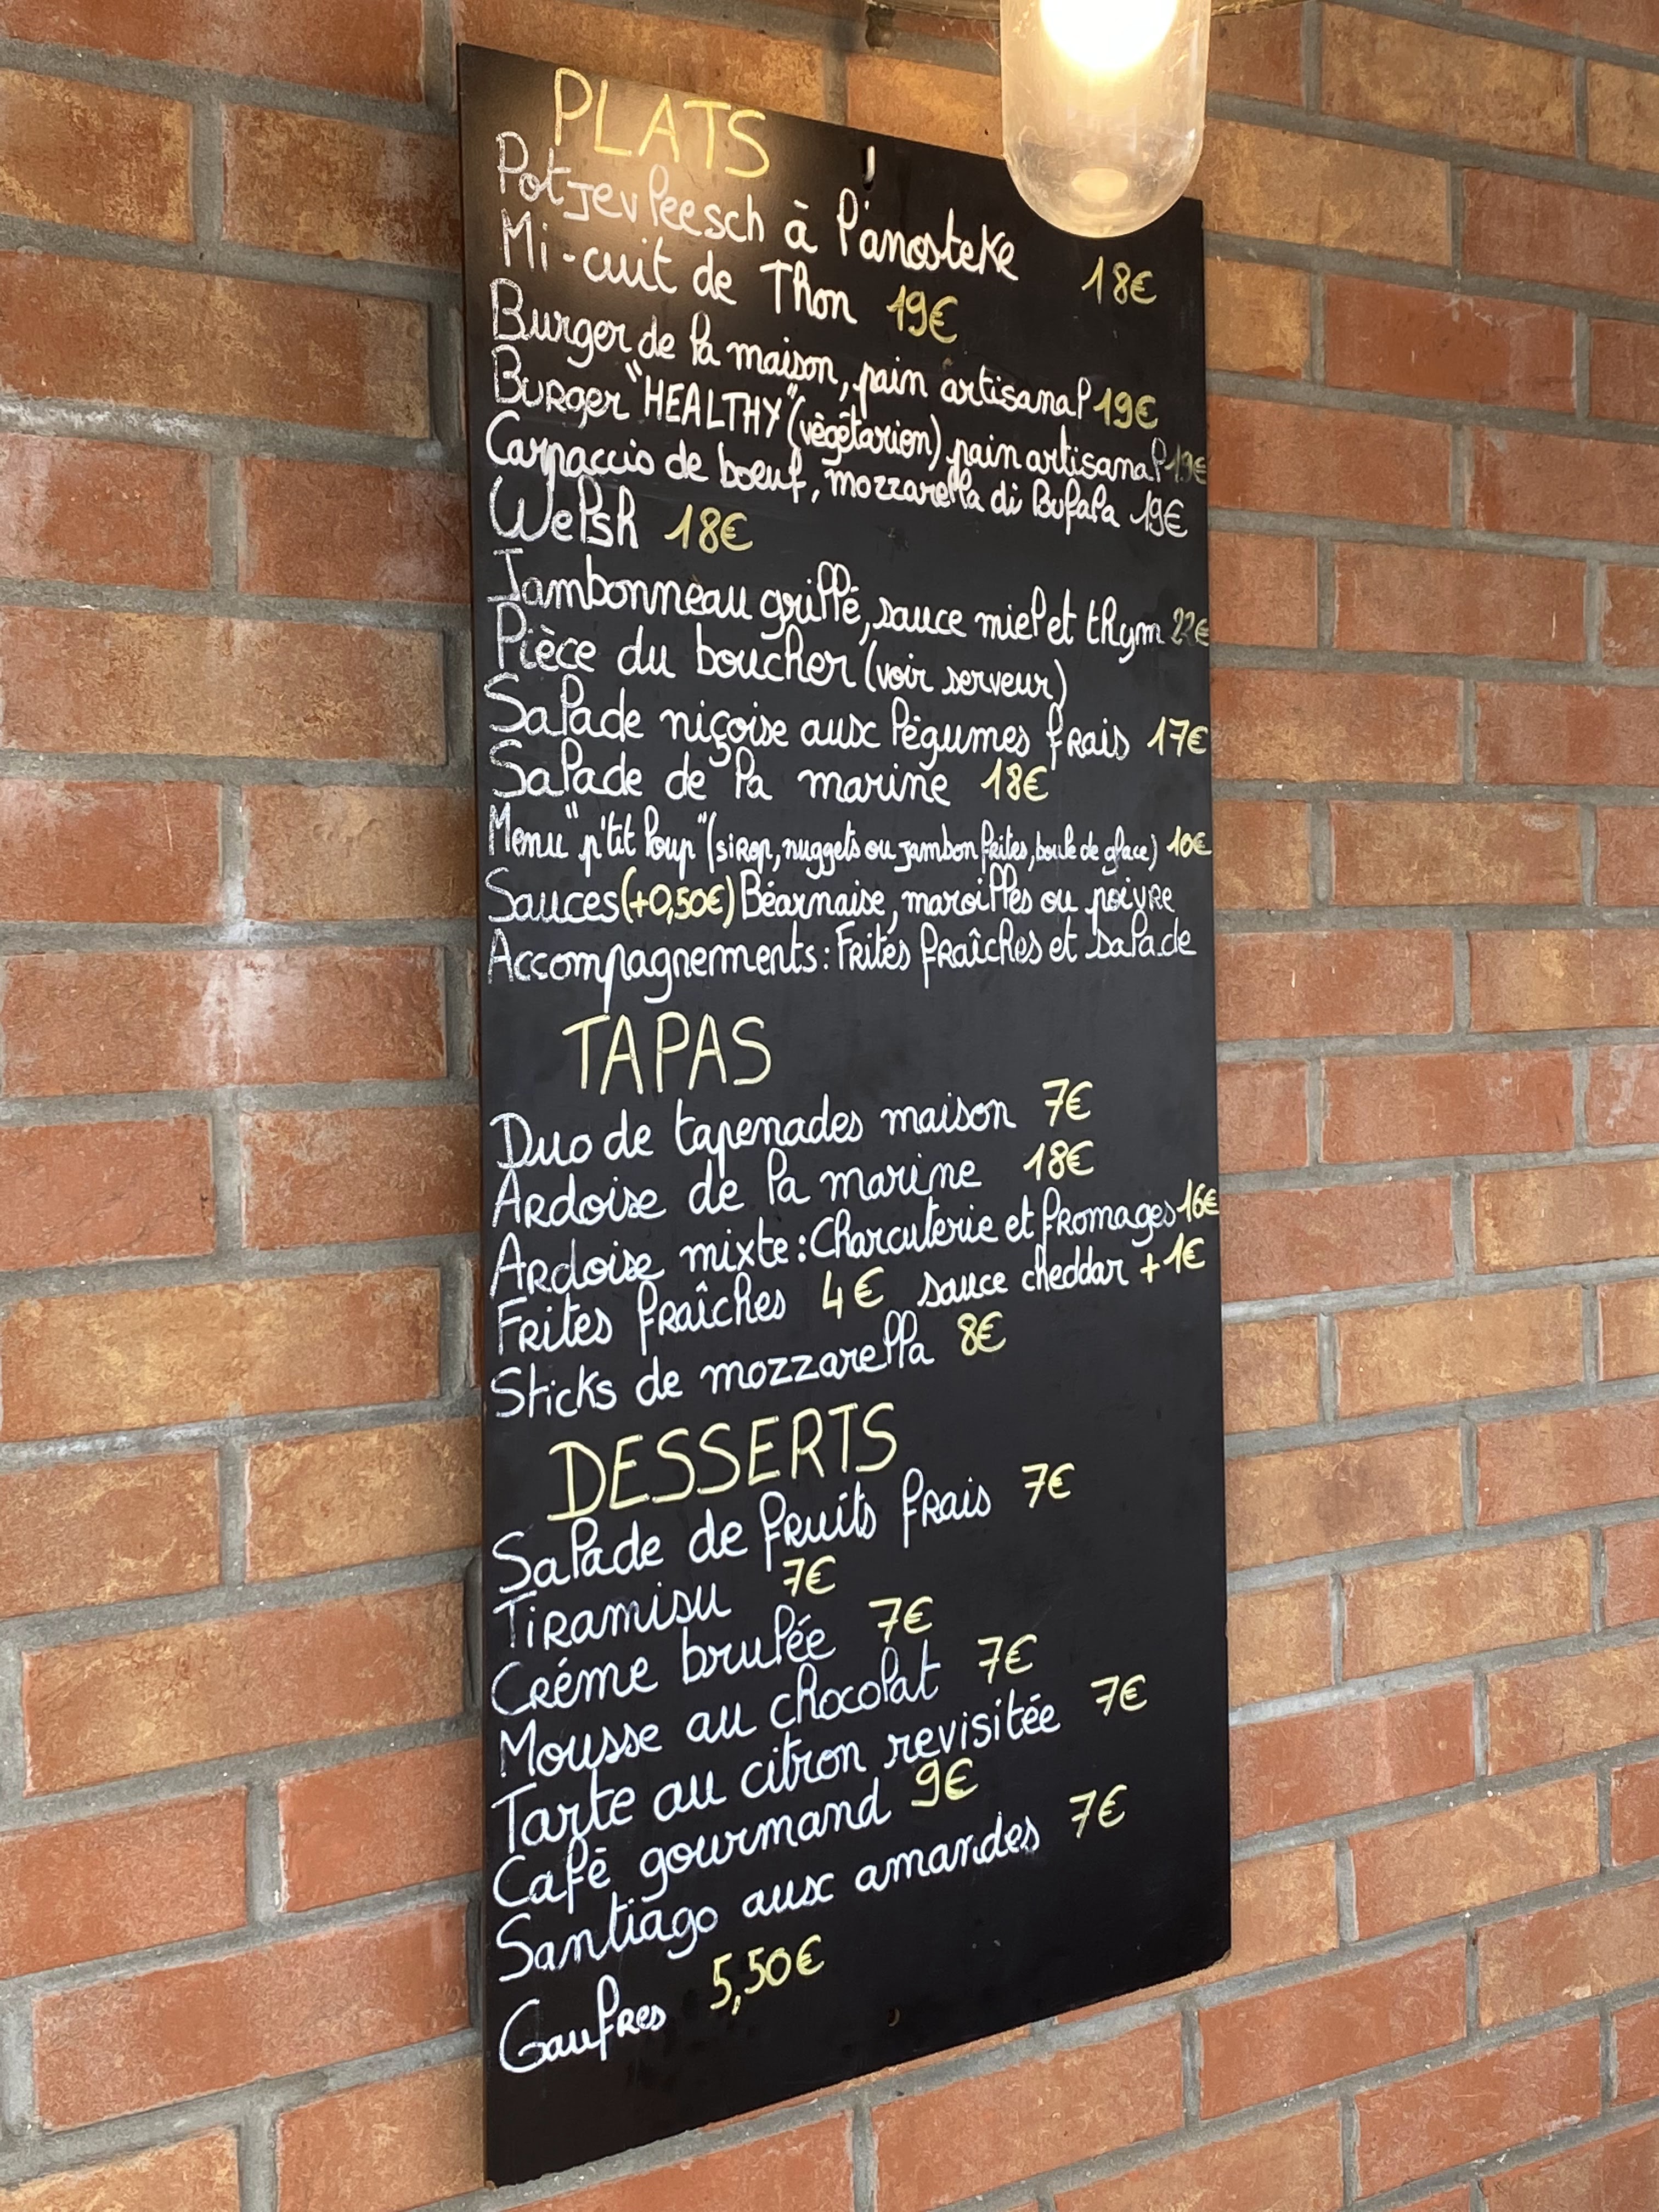 PLATS
Potjevleesch à l'anosteke 18€
Mi-cuit de Thon 19€
Burger de la maison, pain artisanal 19€
Burger "HEALTHY" (végétarien) pain artisanal 19€
Carpaccio de boeuf, mozzarella di Bufala 19€
Welsh 18€
Jambonneau grillé, sauce miel et thym 22€
Pièce du boucher (voir serveur)
Salade niçoise aux légumes frais 17€
Salade de la marine 18€
Menu "p'tit loup" (sirop, nuggets ou jambon frites, boule de glace) 10€
Sauces (+0,50€) Béarnaise, maroilles ou poivre
Accompagnements : Frites fraîches et salade
TAPAS
Duo de tapenades maison 7€
Ardoise de la marine 18€
Ardoise mixte : Charcuterie et fromages 16€
Frites fraîches 4€ sauce cheddar +1€
Sticks de mozzarella 8€
DESSERTS
Salade de fruits frais 7€
Tiramisu 7€
Créme brulée 7€
Mousse au chocolat 7€
Tarte au citron revisitée 7€
Café gourmand 9€
Santiago aux amandes 7€
Gaufres 5,50€